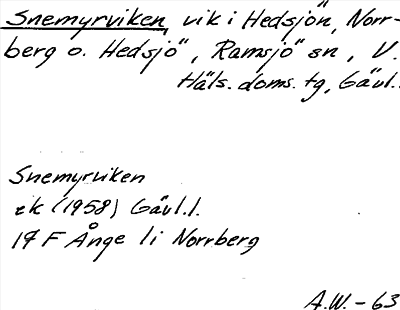 Snemyrviken, vik i Hedsjön, Norr-
berg o. Hedsjö, Ramsjö sn, V.
Häls. doms. tg, Gävl.l.
Snemyrviken
ek (1958) Gävl.l.
17 F Ånge 1i Norrberg
A.W. - 63